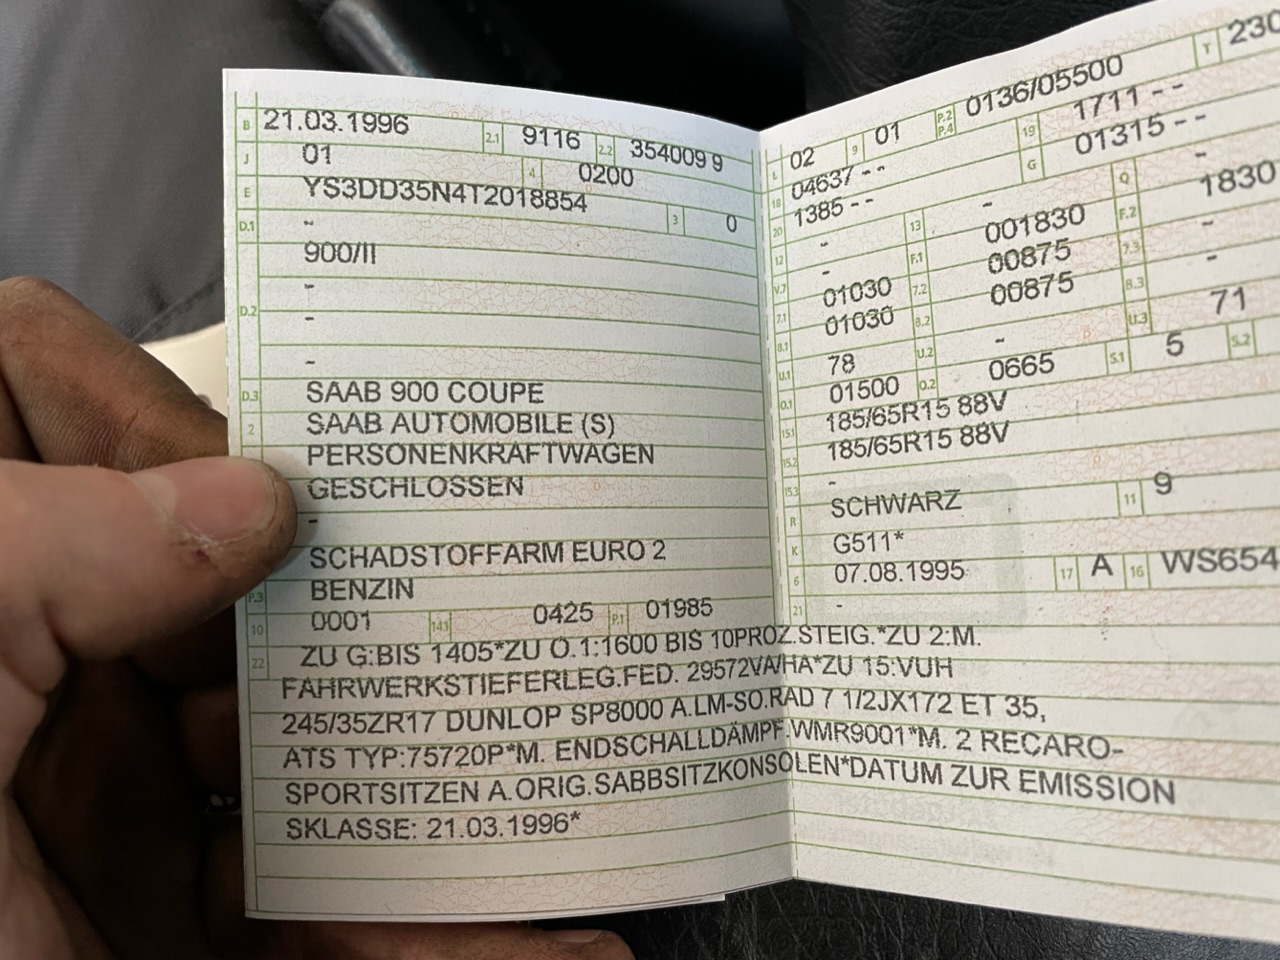 B 21.03.1996 2.1 9116 2.2 354009 9
J 01 4 0200
E YS3DD35N4T2018854 3 0
D.1 -
900/II
-
D.2 -
-
D.3 SAAB 900 COUPE
2 SAAB AUTOMOBILE (S)
PERSONENKRAFTWAGEN
GESCHLOSSEN
-
SCHADSTOFFARM EURO 2
P.3 BENZIN
10 0001 14.1 0425 P.1 01985
L 02 9 01 P.2 P.4 0136/05500 T 230
18 04637 - - 19 1711 - -
20 1385 - - G 01315 - -
12 - 13 - Q -
V.7 - F.1 001830 F.2 1830
7.1 01030 7.2 00875 7.3 -
8.1 01030 8.2 00875 8.3 -
U.1 78 U.2 - U.3 71
O.1 01500 O.2 0665 S.1 5 S.2
15.1 185/65R15 88V
15.2 185/65R15 88V
15.3 -
R SCHWARZ 11 9
K G511*
6 07.08.1995 17 A 16 WS654
21 -
22 ZU G:BIS 1405*ZU O.1:1600 BIS 10PROZ.STEIG.*ZU 2:M.
FAHRWERKSTIEFERLEG.FED. 29572VA/HA*ZU 15:VUH
245/35ZR17 DUNLOP SP8000 A.LM-SO.RAD 7 1/2JX172 ET 35,
ATS TYP:75720P*M. ENDSCHALLDÄMPF.WMR9001*M. 2 RECARO-
SPORTSITZEN A.ORIG.SABBSITZKONSOLEN*DATUM ZUR EMISSION
SKLASSE: 21.03.1996*